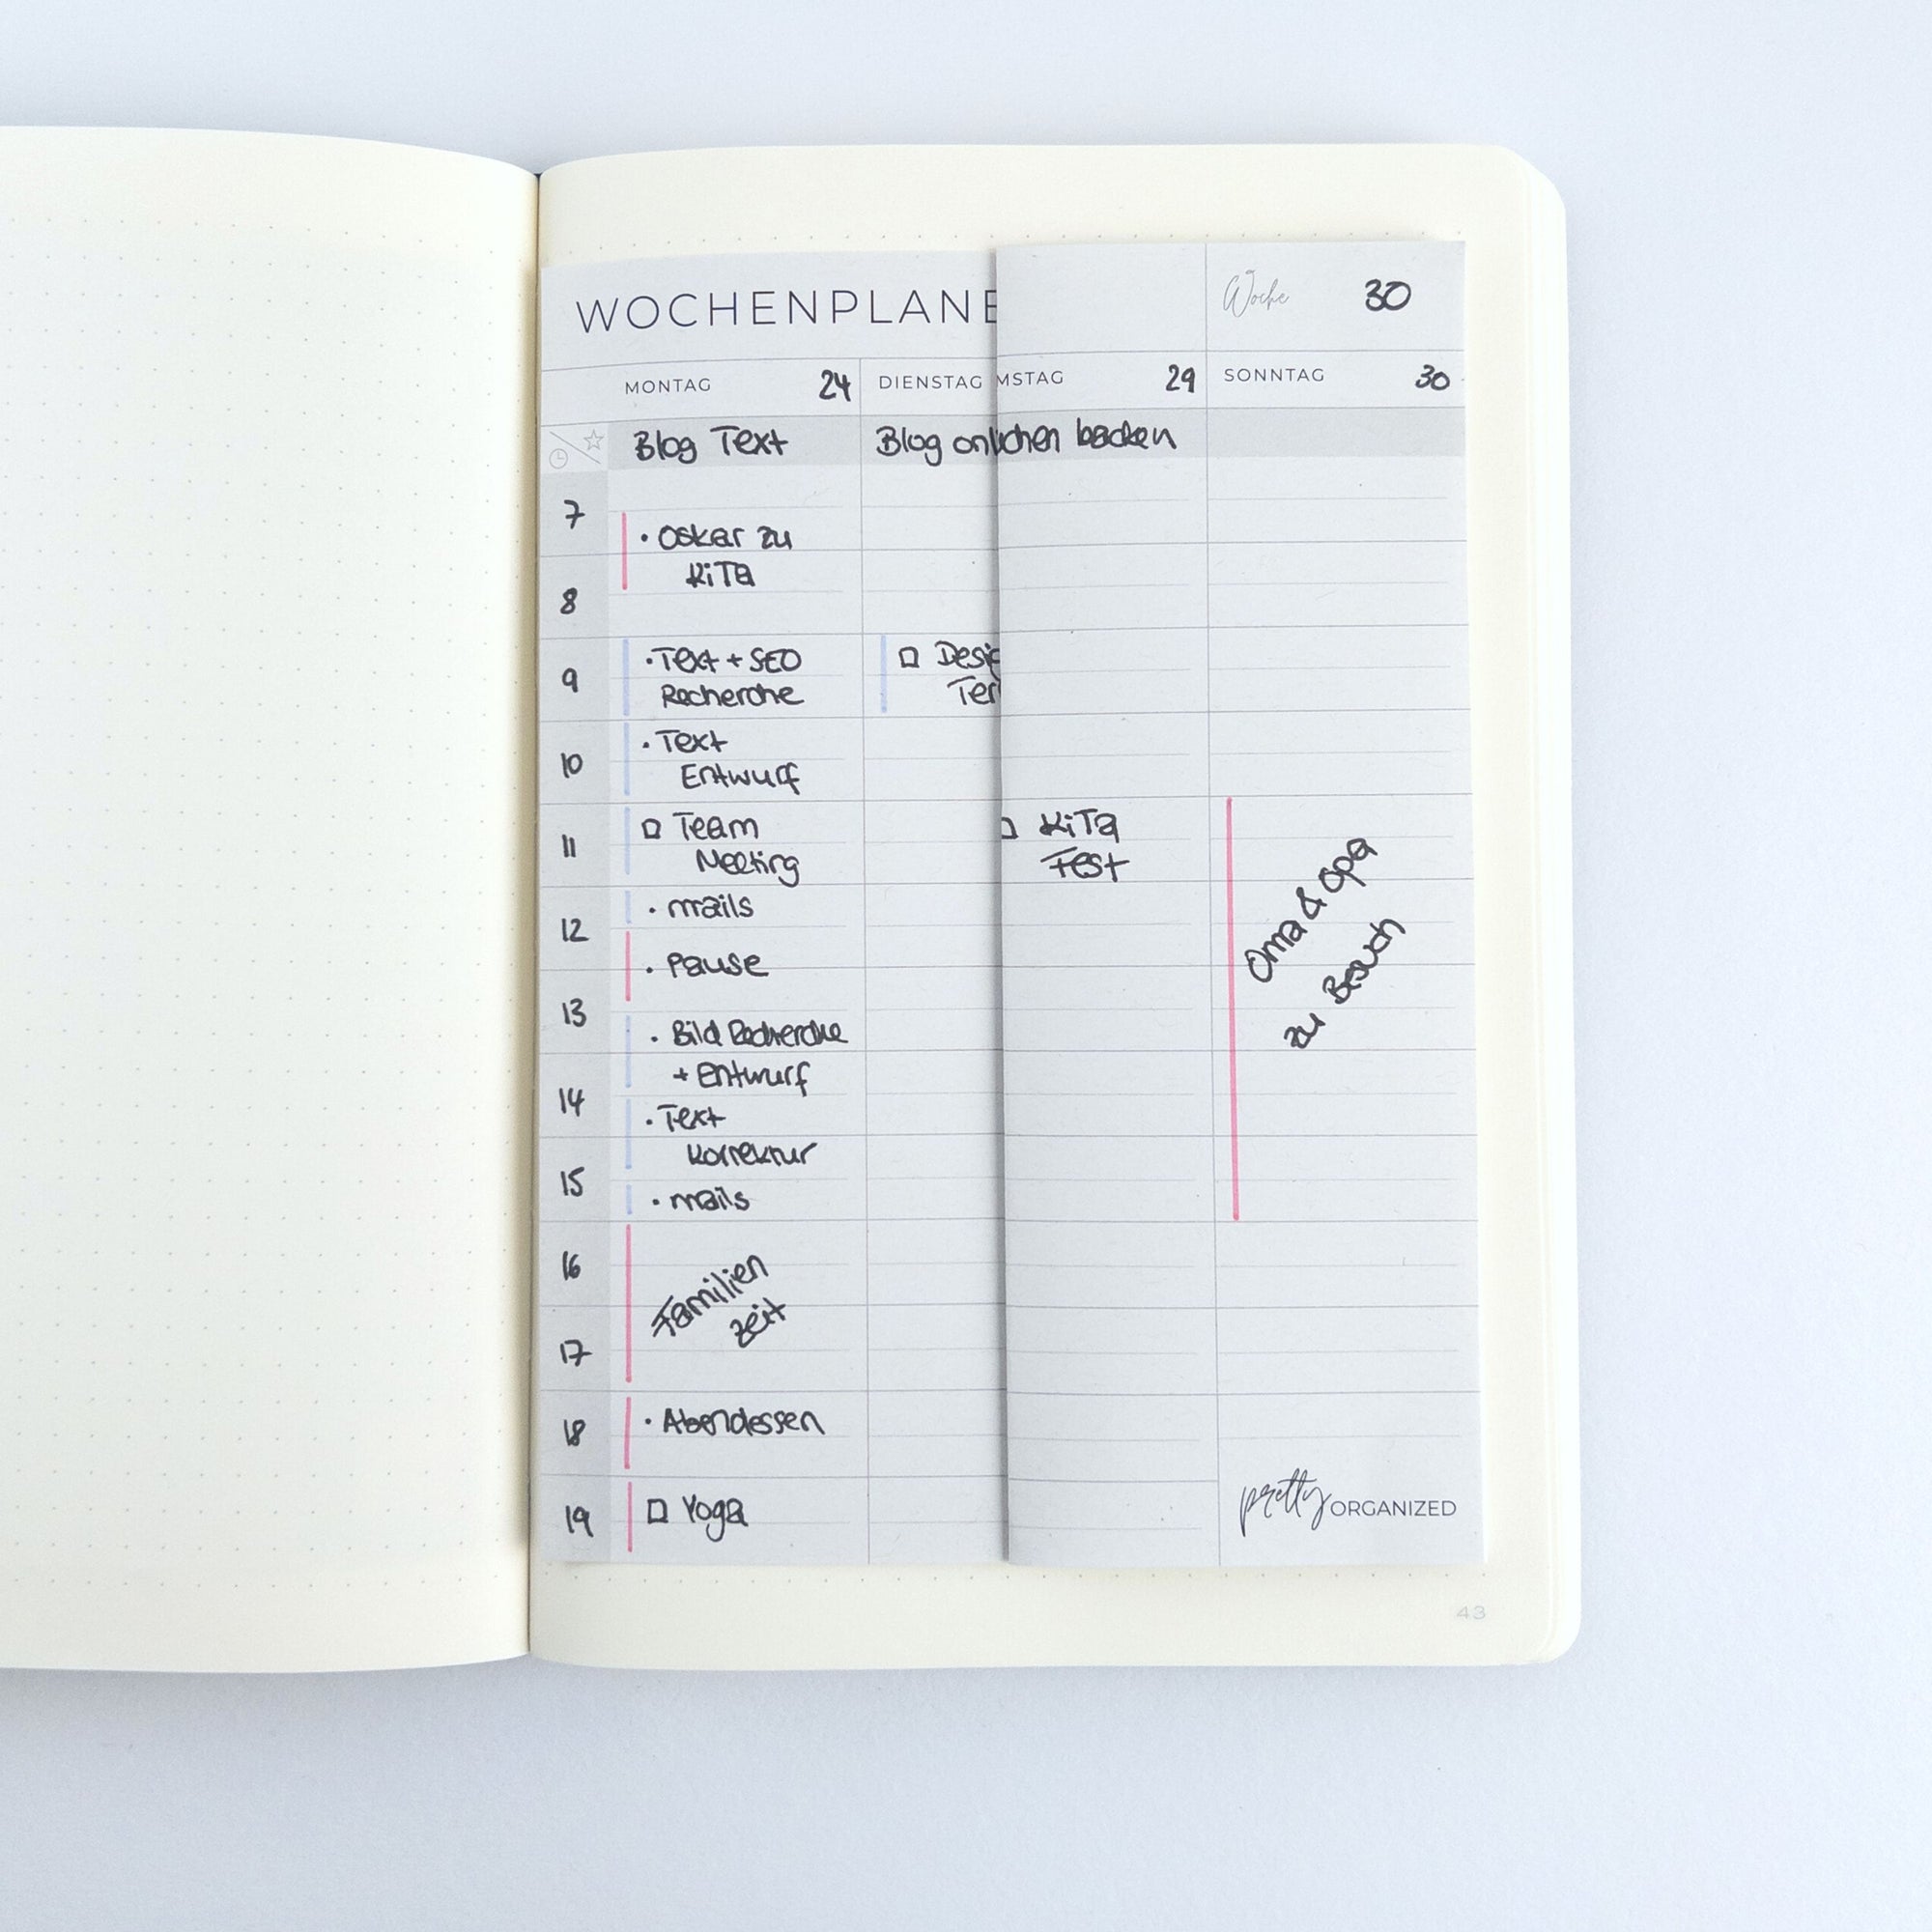 WOCHENPLANE
Woche 30
MONTAG 24
DIENSTAG
MSTAG 29
SONNTAG 30
Blog Text
Blog onl
chen backen
7
• Oskar zu
KiTa
8
9
• Text + SEO
Recherche
□ Desig
Ter
10
• Text
Entwurf
11
□ Team
Meeting
□ KiTa
Fest
Oma & Opa
zu Besuch
12
• mails
• Pause
13
• Bild Recherche
+ Entwurf
14
• Text
Korrektur
15
• mails
16
Familien
zeit
17
18
• Abendessen
19
□ Yoga
pretty ORGANIZED
43